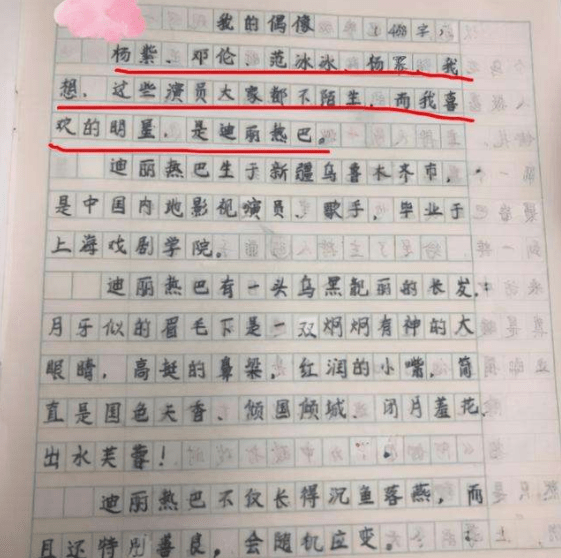 我的偶像 (488字)
杨紫、邓伦、范冰冰、杨幂、我
想，这些演员大家都不陌生，而我喜
欢的明星，是迪丽热巴。
迪丽热巴生于新疆乌鲁木齐市，
是中国内地影视演员、歌手，毕业于
上海戏剧学院。
迪丽热巴有一头乌黑靓丽的长发，
月牙似的眉毛下是一双炯炯有神的大
眼睛，高挺的鼻梁，红润的小嘴，简
直是国色天香、倾国倾城、闭月羞花、
出水芙蓉！
迪丽热巴不仅长得沉鱼落燕，而
且还特别善良，会随机应变。